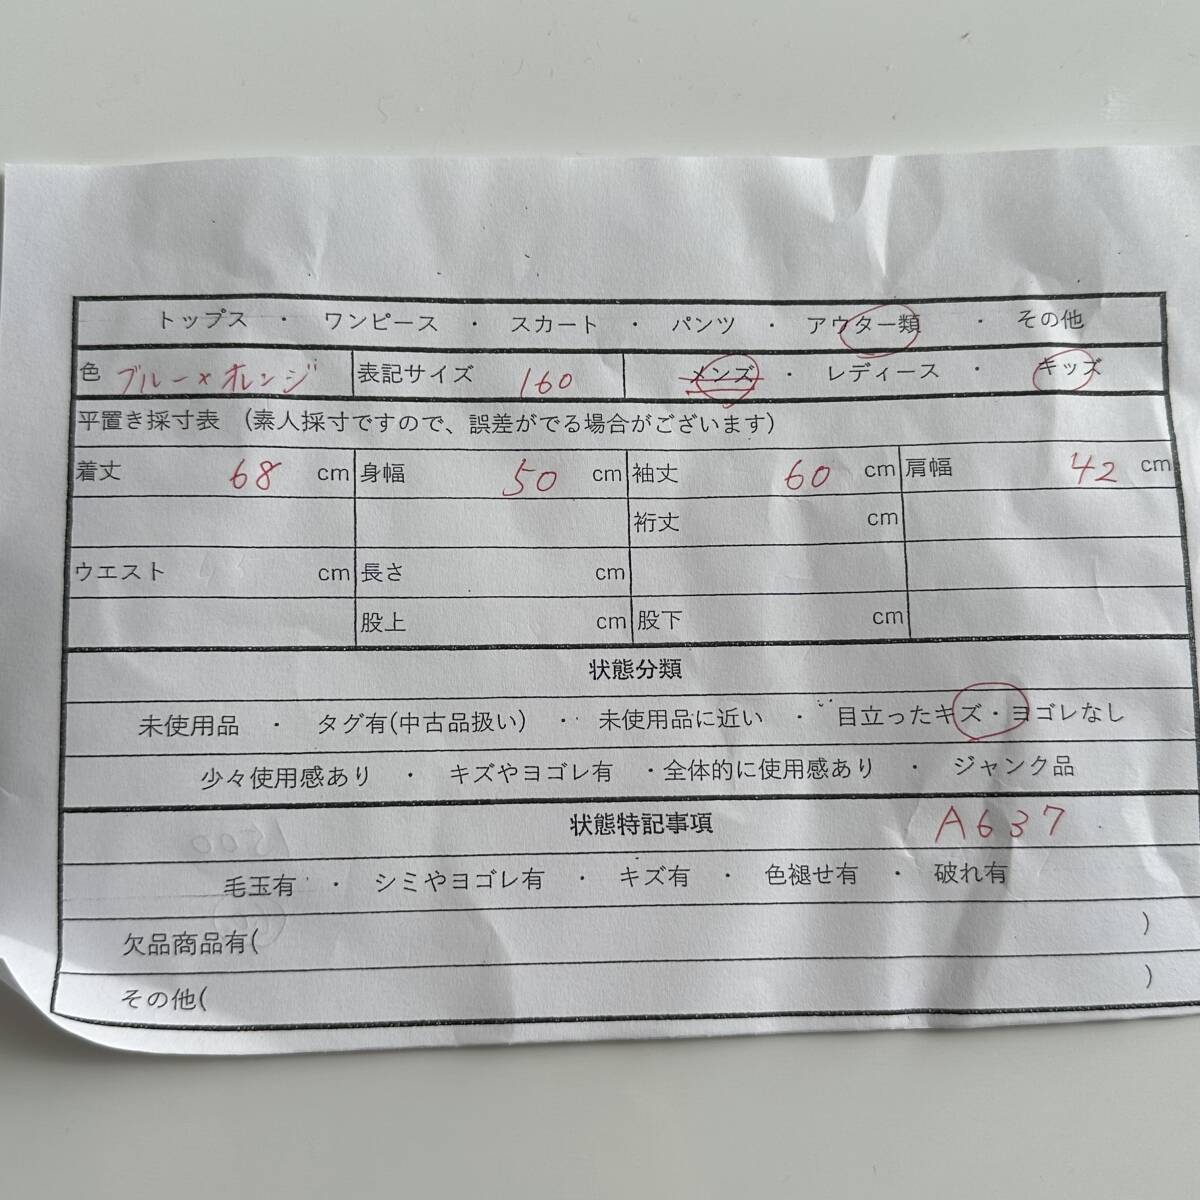 トップス ・ ワンピース ・ スカート ・ パンツ ・ アウター類 ・ その他
色 ブルー×オレンジ 表記サイズ 160 メンズ ・ レディース ・ キッズ
平置き採寸表 (素人採寸ですので、誤差がでる場合がございます)
着丈 68 cm 身幅 50 cm 袖丈 60 cm 肩幅 42 cm
裄丈 cm
ウエスト cm 長さ cm
股上 cm 股下 cm
状態分類
未使用品 ・ タグ有(中古品扱い) ・ 未使用品に近い ・ 目立ったキズ・ヨゴレなし
少々使用感あり ・ キズやヨゴレ有 ・全体的に使用感あり ・ ジャンク品
状態特記事項 A637
毛玉有 ・ シミやヨゴレ有 ・ キズ有 ・ 色褪せ有 ・ 破れ有
欠品商品有( )
その他( )